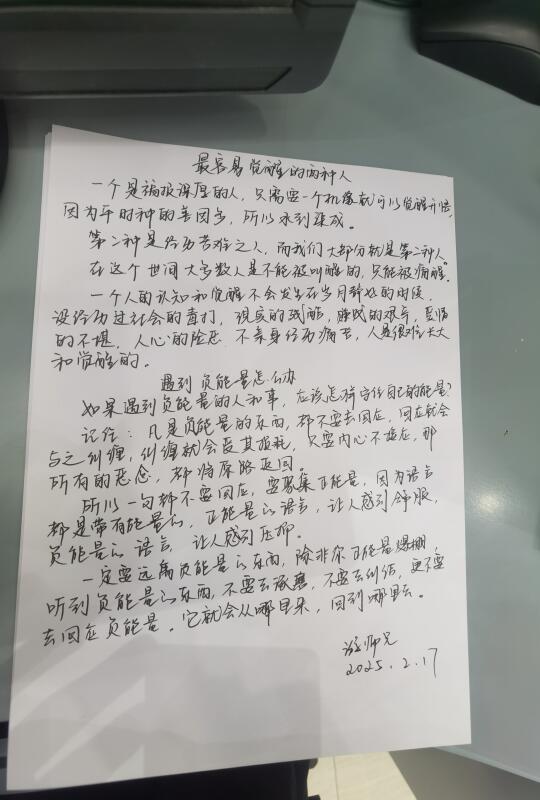 最容易觉醒的两种人
一个是福报深厚的人，只需要一个机缘就可以觉醒开悟，
因为平时种的善因多，所以水到渠成。
第二种是经历苦难之人，而我们大部分就是第二种人
在这个世间大多数人是不能被叫醒的，只能被痛醒。
一个人的认知和觉醒不会发生在岁月静好的时候，
没经历过社会的毒打，现实的残酷，赚钱的艰辛，
的不堪，人心的险恶，不亲身经历痛苦，人是很难长大
和觉醒的。
遇到负能量怎么办
如果遇到负能量的人和事，应该怎样守住自己的能量？
记住：凡是负能量的东西，都不要去回应，回应就会
与之纠缠，纠缠就会受其损耗，只要内心不接应，那
所有的恶念，都将原路返回。
所以一句都不要回应，要聚集正能量，因为语言
都是带有能量的，正能量的语言，让人感到舒服，
负能量的语言，让人感到压抑。
一定要远离负能量的东西，除非你正能量爆棚，
听到负能量的东西，不要去琢磨，不要去纠结，更不要
去回应负能量。它就会从哪里来，回到哪里去。
师兄
2025.2.17